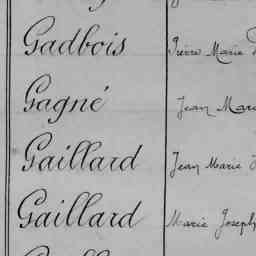 Gadbois Pierre Marie
Gagné Jean Mar
Gaillard Jean Marie
Gaillard Marie Joseph